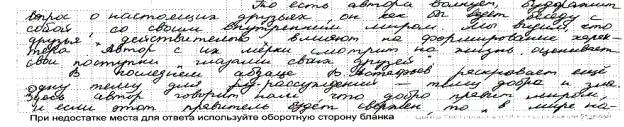 То есть автора волнует,
вопрос о настоящих друзьях, он как бы ведет беседу с
собой, со своим внутренним миром. Мы видим, что
друзья действительно влияют на формирование харак-
тера. Автор с их мерки смотрит на жизнь, оценивает
свои поступки "глазами своих друзей".
В последнем абзаце В. Астафьев раскрывает ещё
одну тему для рассуждений – тему добра и зла.
Здесь автор говорит нам, что добро правит миром,
и если этот правитель будет свержен, то "в мире на-
При недостатке места для ответа используйте оборотную сторону бланка